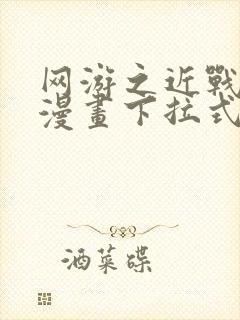 网游之近戰
漫畫下拉式
酒菜碟